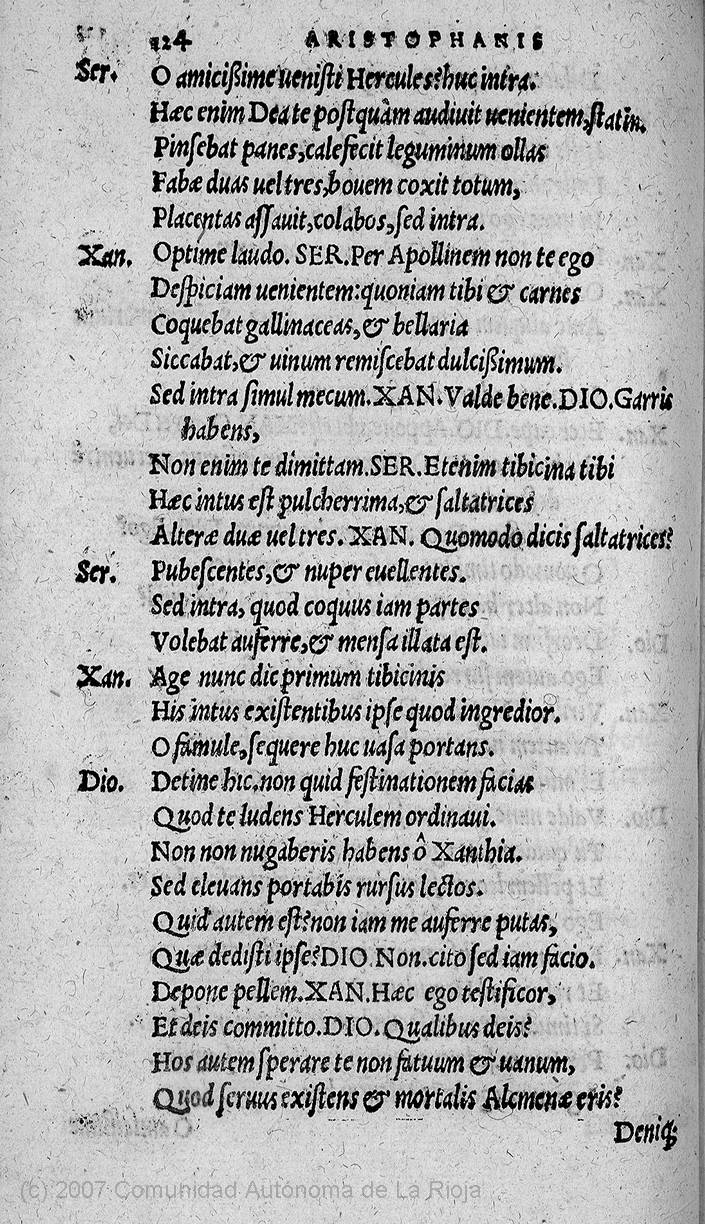 124 ARISTOPHANIS
Ser. O amicißime uenisti Hercules? huc intra.
Hæc enim Dea te postquàm audiuit uenientem, statĩm.
Pinsebat panes, calefecit leguminum ollas
Fabæ duas uel tres, bouem coxit totum,
Placentas assauit, colabos, sed intra.
Xan. Optime laudo. SER. Per Apollinem non te ego
Despiciam uenientem: quoniam tibi & carnes
Coquebat gallinaceas, & bellaria
Siccabat, & uinum remiscebat dulcißimum.
Sed intra simul mecum. XAN. Valde bene. DIO. Garris
habens,
Non enim te dimittam. SER. Etenim tibicina tibi
Hæc intus est pulcherrima, & saltatrices
Alteræ duæ uel tres. XAN. Quomodo dicis saltatrices?
Ser. Pubescentes, & nuper euellentes.
Sed intra, quod coquus iam partes
Volebat auferre, & mensa illata est.
Xan. Age nunc dic primum tibicinis
His intus existentibus ipse quod ingredior.
O famule, sequere huc uasa portans.
Dio. Detine hic. non quid festinationem facias
Quod te ludens Herculem ordinaui.
Non non nugaberis habens ô Xanthia.
Sed eleuans portabis rursus lectos.
Quid autem est? non iam me auferre putas,
Quæ dedisti ipse? DIO. Non. cito sed iam facio.
Depone pellem. XAN. Hæc ego testificor,
Et deis committo. DIO. Qualibus deis?
Hos autem sperare te non fatuum & uanum,
Quod seruus existens & mortalis Alcmenæ eris?
Deniq;
(c) 2007 Comunidad Autónoma de La Rioja